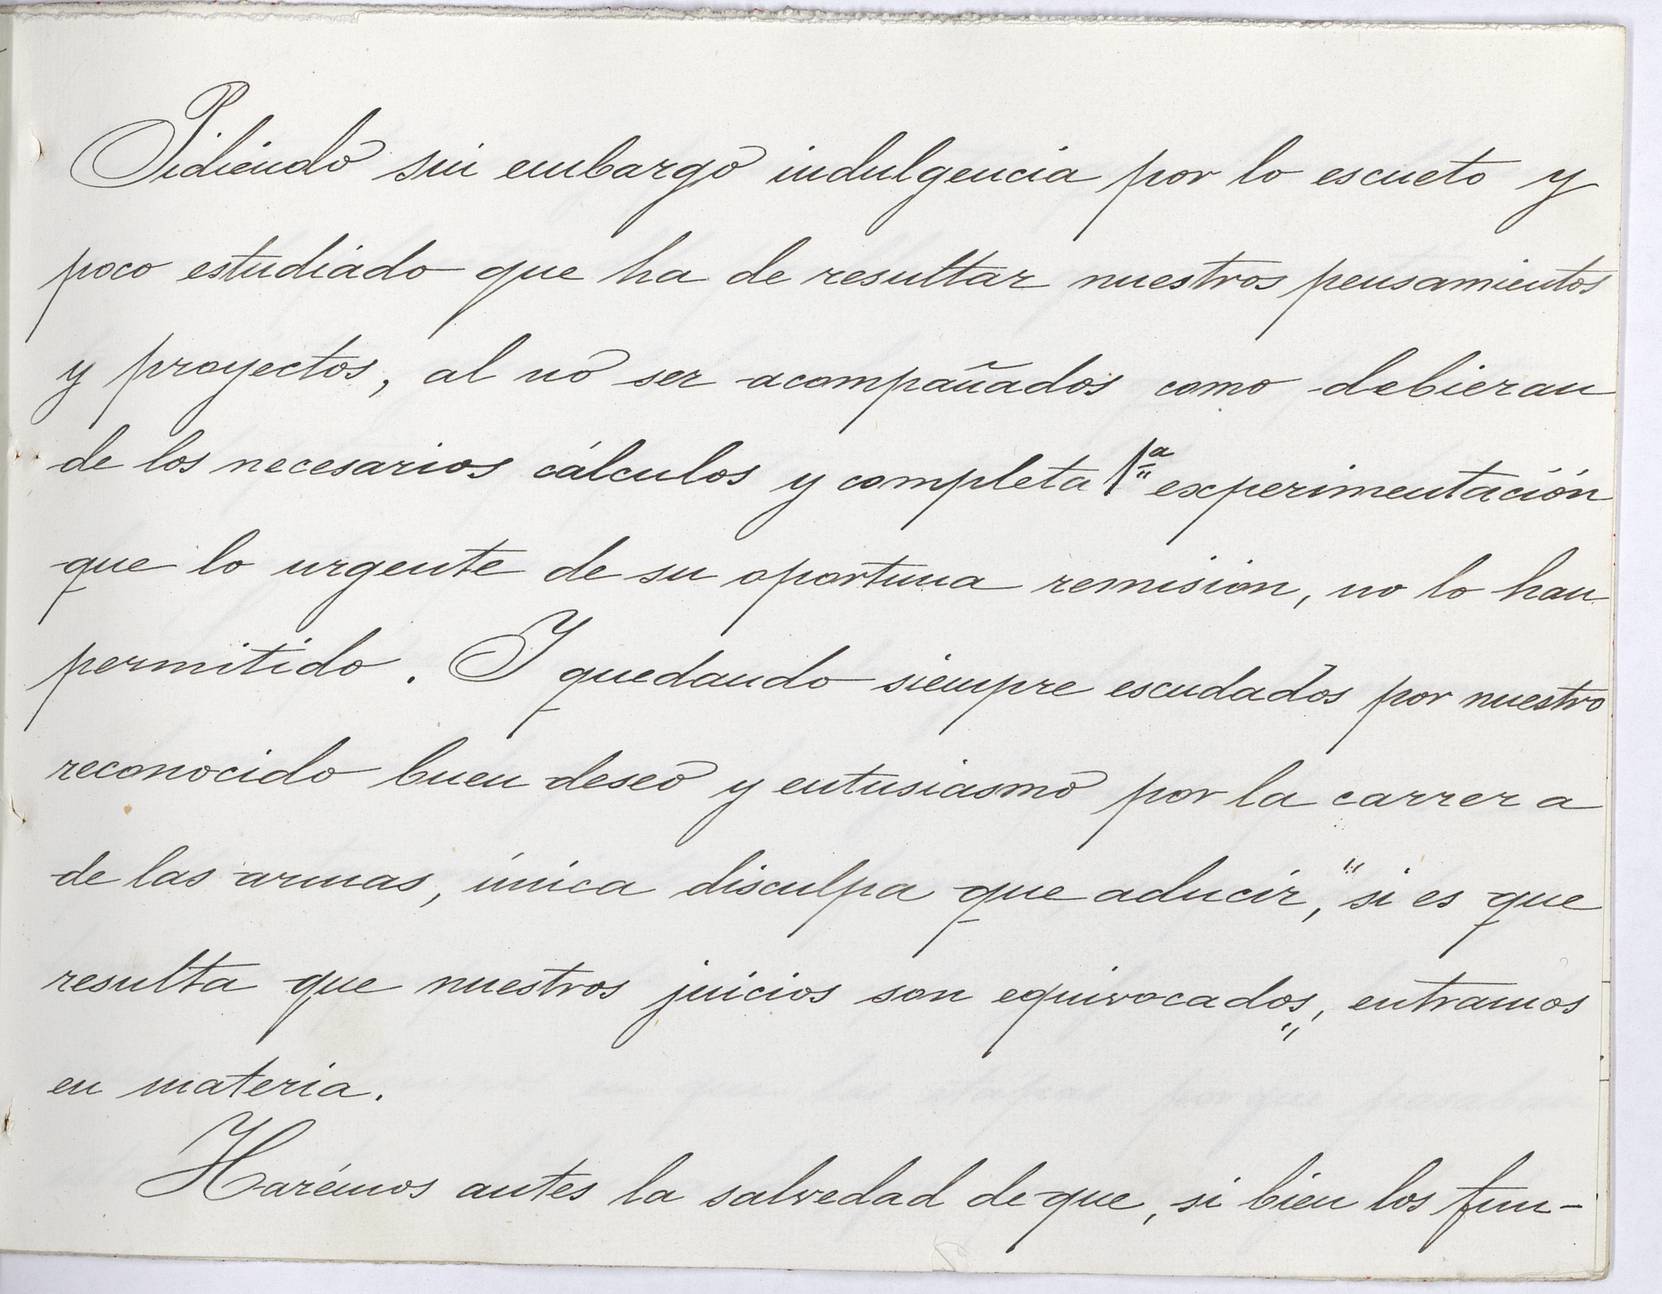 Pidiendo sin embargo indulgencia por lo escueto y
poco estudiado que ha de resultar nuestros pensamientos
y proyectos, al no ser acompañados como debieran
de los necesarios cálculos y completa 1ª experimentación
que lo urgente de su oportuna remision, no lo han
permitido. Y quedando siempre escudados por nuestro
reconocido buen deseo y entusiasmo por la carrera
de las armas, única disculpa que aducir, "si es que
resulta que nuestros juicios son equivocados", entramos
en materia.
Harémos antes la salvedad de que, si bien los fun-